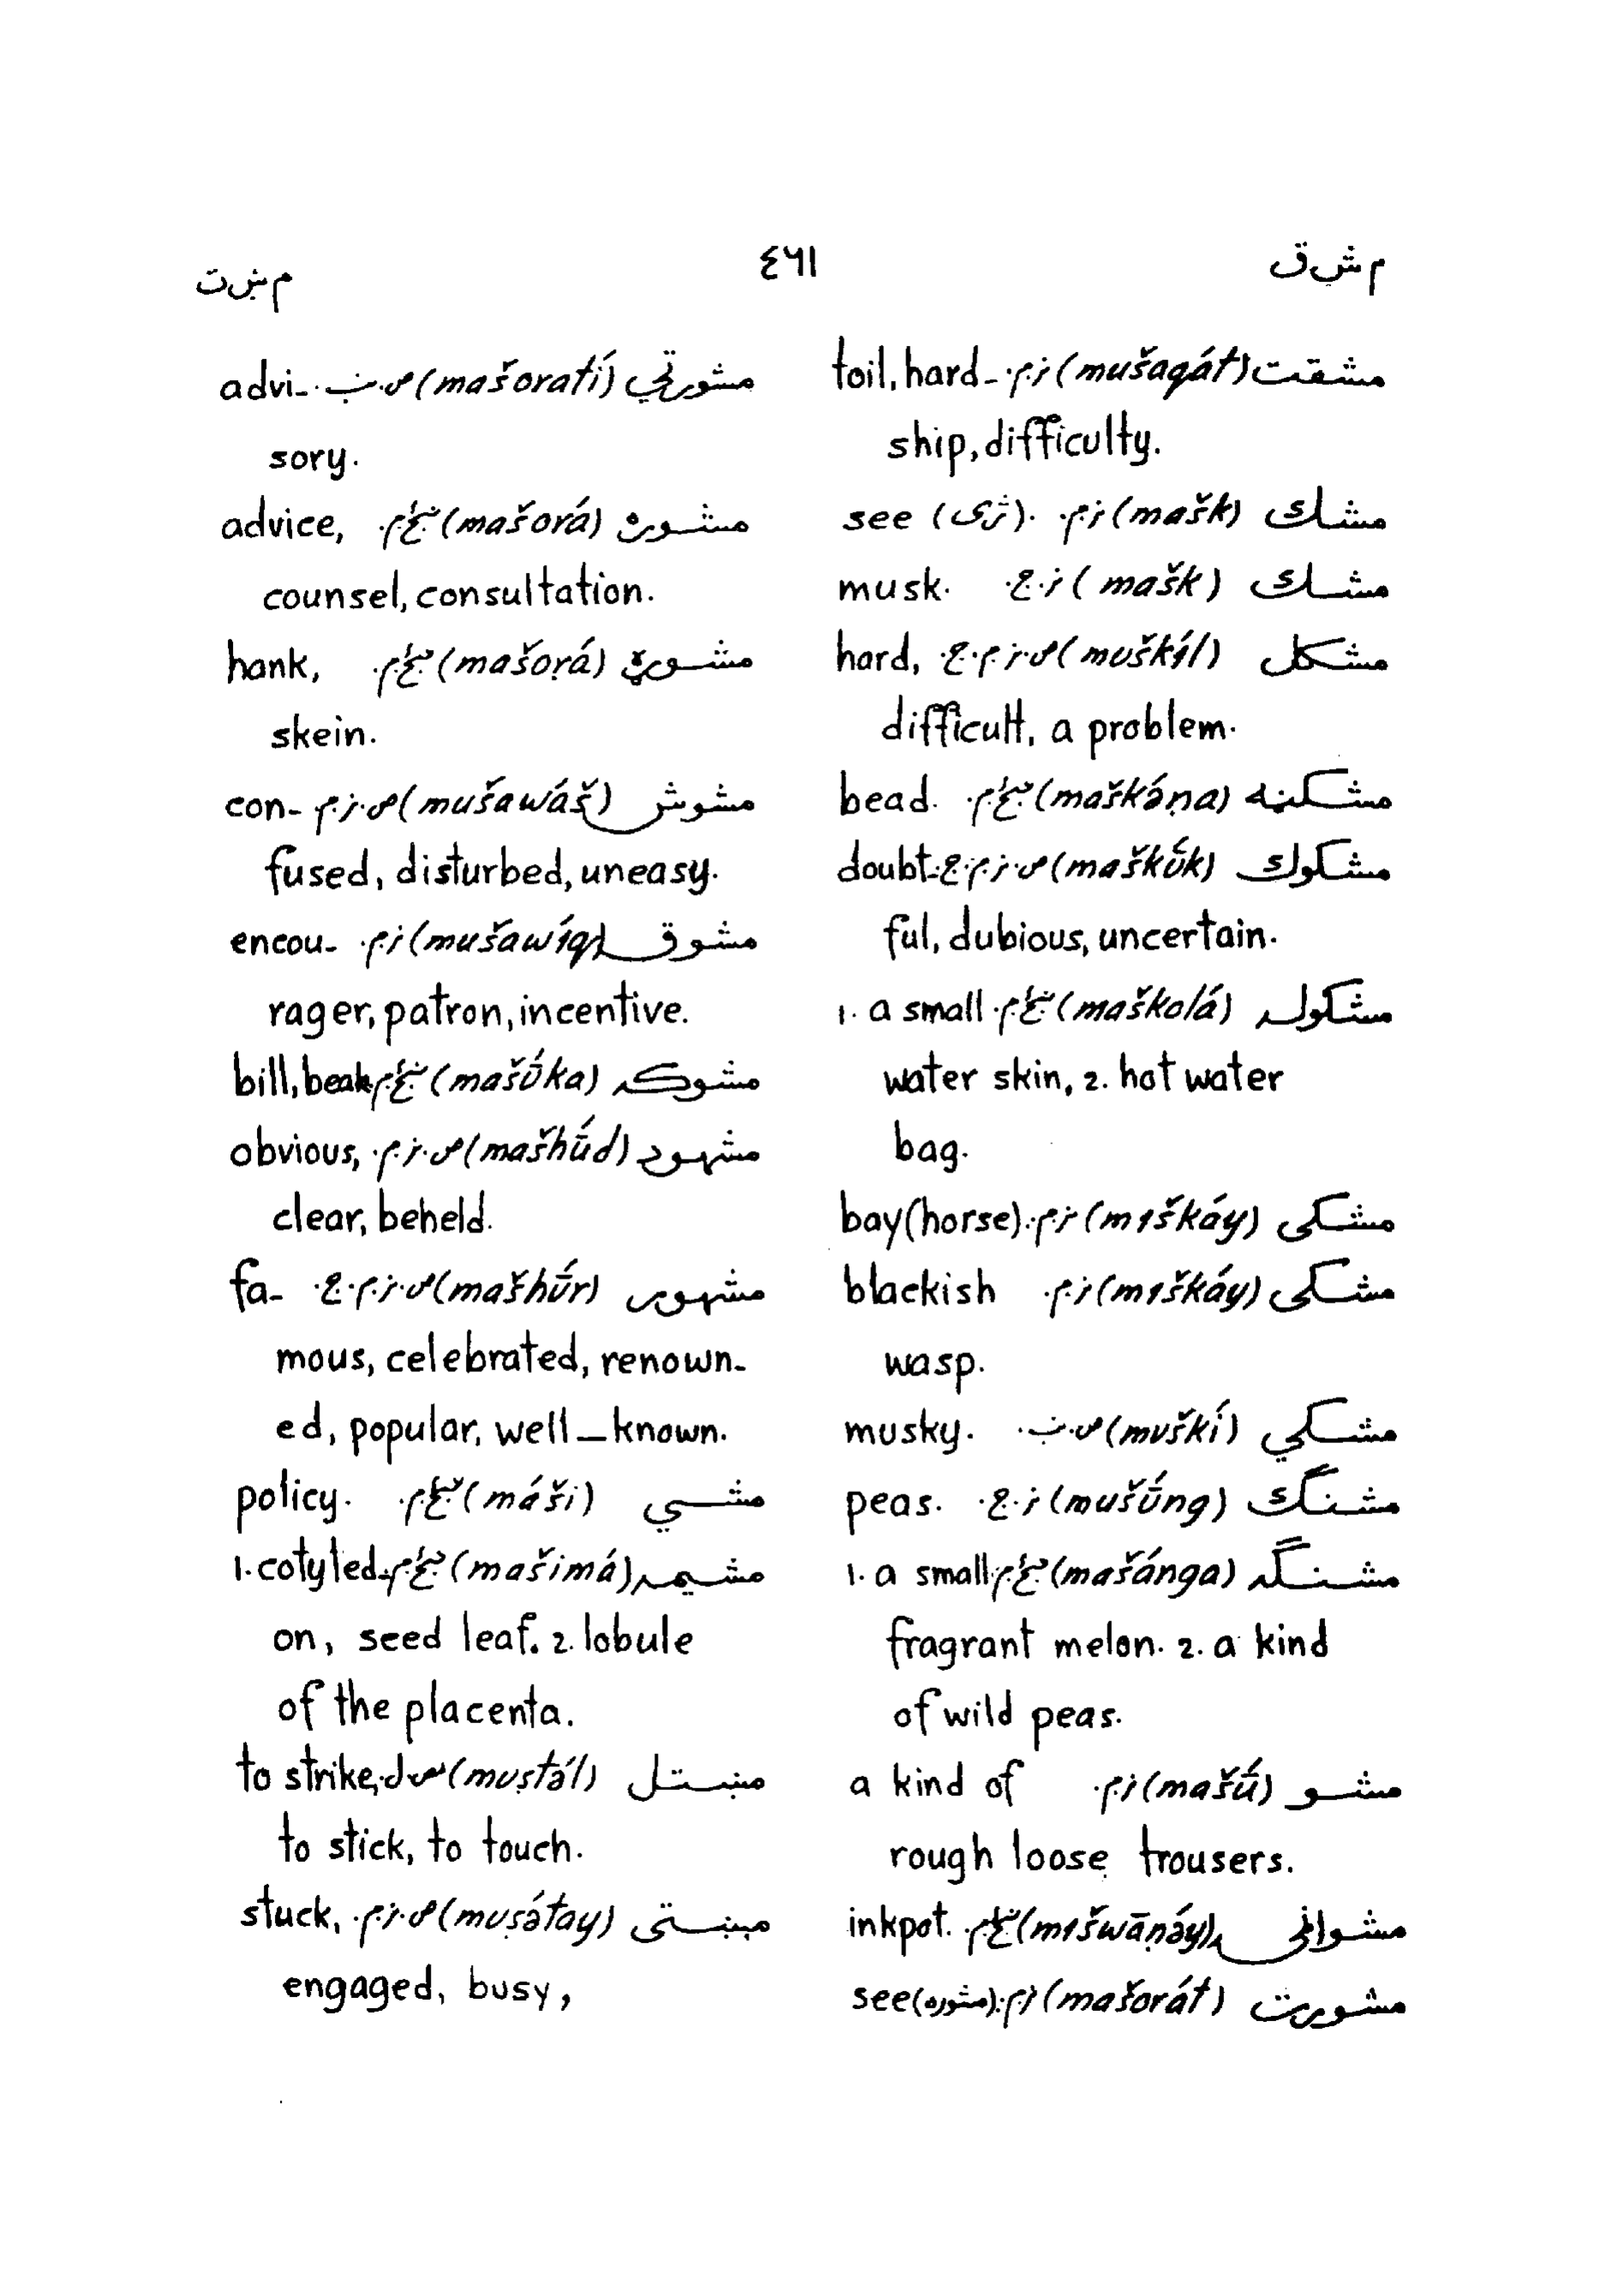 م ش ق
٤٦١
م ښ ت
مشقت (mušaqát) نر.م. toil, hard-
ship, difficulty.
مشك (mašk) نر.م. see (ژى).
مشك (mašk) نر.ج. musk.
مشكل (muškíl) ص.نر.م.ج. hard,
difficult, a problem.
مشكڼه (maškə́ṇa) ښځ.م. bead.
مشكوك (maškū́k) ص.نر.م.ج. doubt-
ful, dubious, uncertain.
مشكوله (maškolá) ښځ.م. 1. a small
water skin, 2. hot water
bag.
مشكى (mıškáy) نر.م. bay (horse).
مشكى (mıškáy) نر.م. blackish
wasp.
مشكي (muškí) musky.
مشنګ (mušū́ng) نر.ج. peas.
مشنګه (mašánga) ښځ.م. 1. a small
fragrant melon. 2. a kind
of wild peas.
مشو (mašū́) نر.م. a kind of
rough loose trousers.
مشواڼۍ (mıšwāṇə́y) ښځ.م. inkpot.
مشورت (mašorát) نر.م. see (مشوره).
مشورتي (mašoratí) advi-
sory.
مشوره (mašorá) ښځ.م. advice,
counsel, consultation.
مشوړه (mašoṛá) ښځ.م. hank,
skein.
مشوش (mušawáš) ص.نر.م. con-
fused, disturbed, uneasy.
مشوق (mušawíq) نر.م. encou-
rager, patron, incentive.
مشوكه (mašū́ka) ښځ.م. bill, beak
مشهود (mašhū́d) ص.نر.م. obvious,
clear, beheld.
مشهور (mašhū́r) ص.نر.م.ج. fa-
mous, celebrated, renown-
ed, popular, well-known.
مشي (máši) ښځ.م. policy.
مشيمه (mašimá) ښځ.م. 1. cotyled-
on, seed leaf. 2. lobule
of the placenta.
مښتل (muṣtə́l) to strike,
to stick, to touch.
مښتى (muṣə́tay) ص.نر.م. stuck,
engaged, busy,